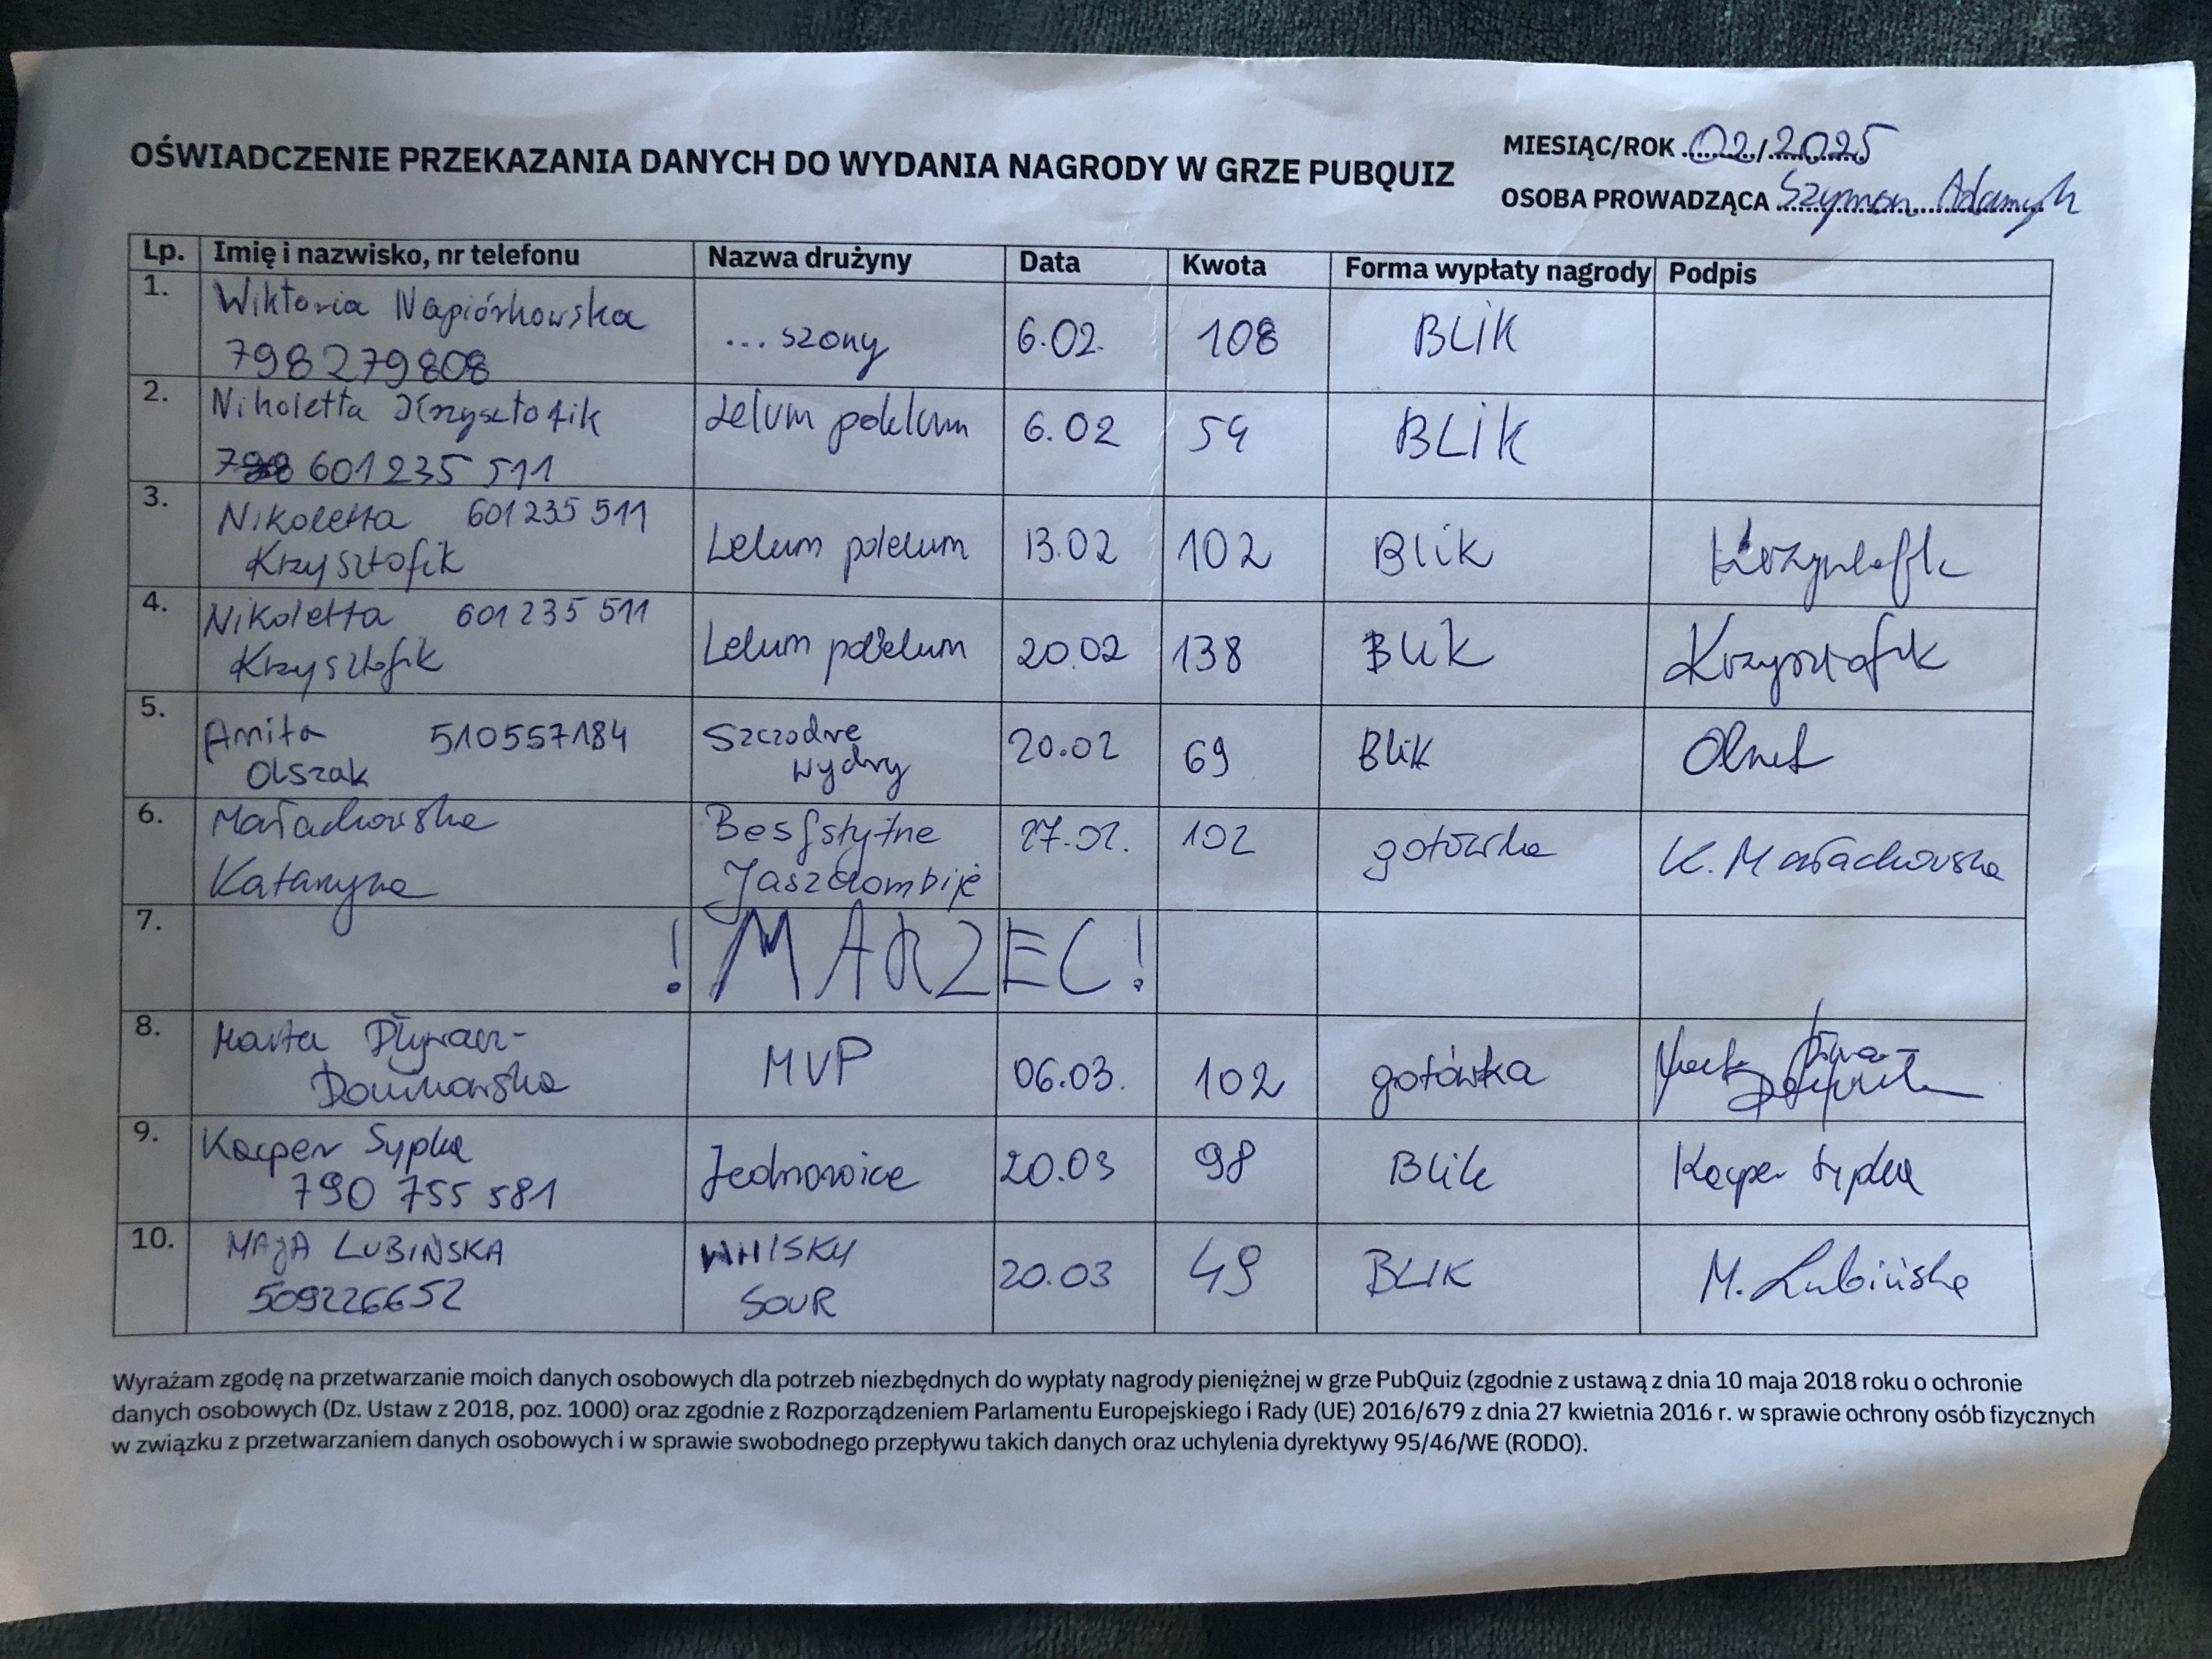 OŚWIADCZENIE PRZEKAZANIA DANYCH DO WYDANIA NAGRODY W GRZE PUBQUIZ
MIESIĄC/ROK 02/2025
OSOBA PROWADZĄCA Szymon
Lp. Imię i nazwisko, nr telefonu Nazwa drużyny Data Kwota Forma wypłaty nagrody Podpis
1. Wiktoria Napiórkowska ...szony 6.02. 108 BLIK
798279808
2. Nikoletta Krzysztofik Lelum polelum 6.02 54 BLIK
601235 511
3. Nikoletta 601 235 511 Lelum polelum 13.02 102 Blik
Krzysztofik
4. Nikoletta 601 235 511 Lelum polelum 20.02 138 Blik Krzysztofik
Krzysztofik
5. Anita 510557184 Szczodre 20.02 69 Blik
Olszak wydry
6. Małachowska 27.02. 102 gotówka K. Małachowska
Katarzyna
7. ! MARZEC!
8. Marta MVP 06.03. 102 gotówka
9. Kacper Sypka 20.03 98 Blik Kacper Sypka
790 755 581
10. MAJA LUBIŃSKA WHISKY 20.03 49 BLIK M. Lubińska
509226652 SOUR
Wyrażam zgodę na przetwarzanie moich danych osobowych dla potrzeb niezbędnych do wypłaty nagrody pieniężnej w grze PubQuiz (zgodnie z ustawą z dnia 10 maja 2018 roku o ochronie
danych osobowych (Dz. Ustaw z 2018, poz. 1000) oraz zgodnie z Rozporządzeniem Parlamentu Europejskiego i Rady (UE) 2016/679 z dnia 27 kwietnia 2016 r. w sprawie ochrony osób fizycznych
w związku z przetwarzaniem danych osobowych i w sprawie swobodnego przepływu takich danych oraz uchylenia dyrektywy 95/46/WE (RODO).